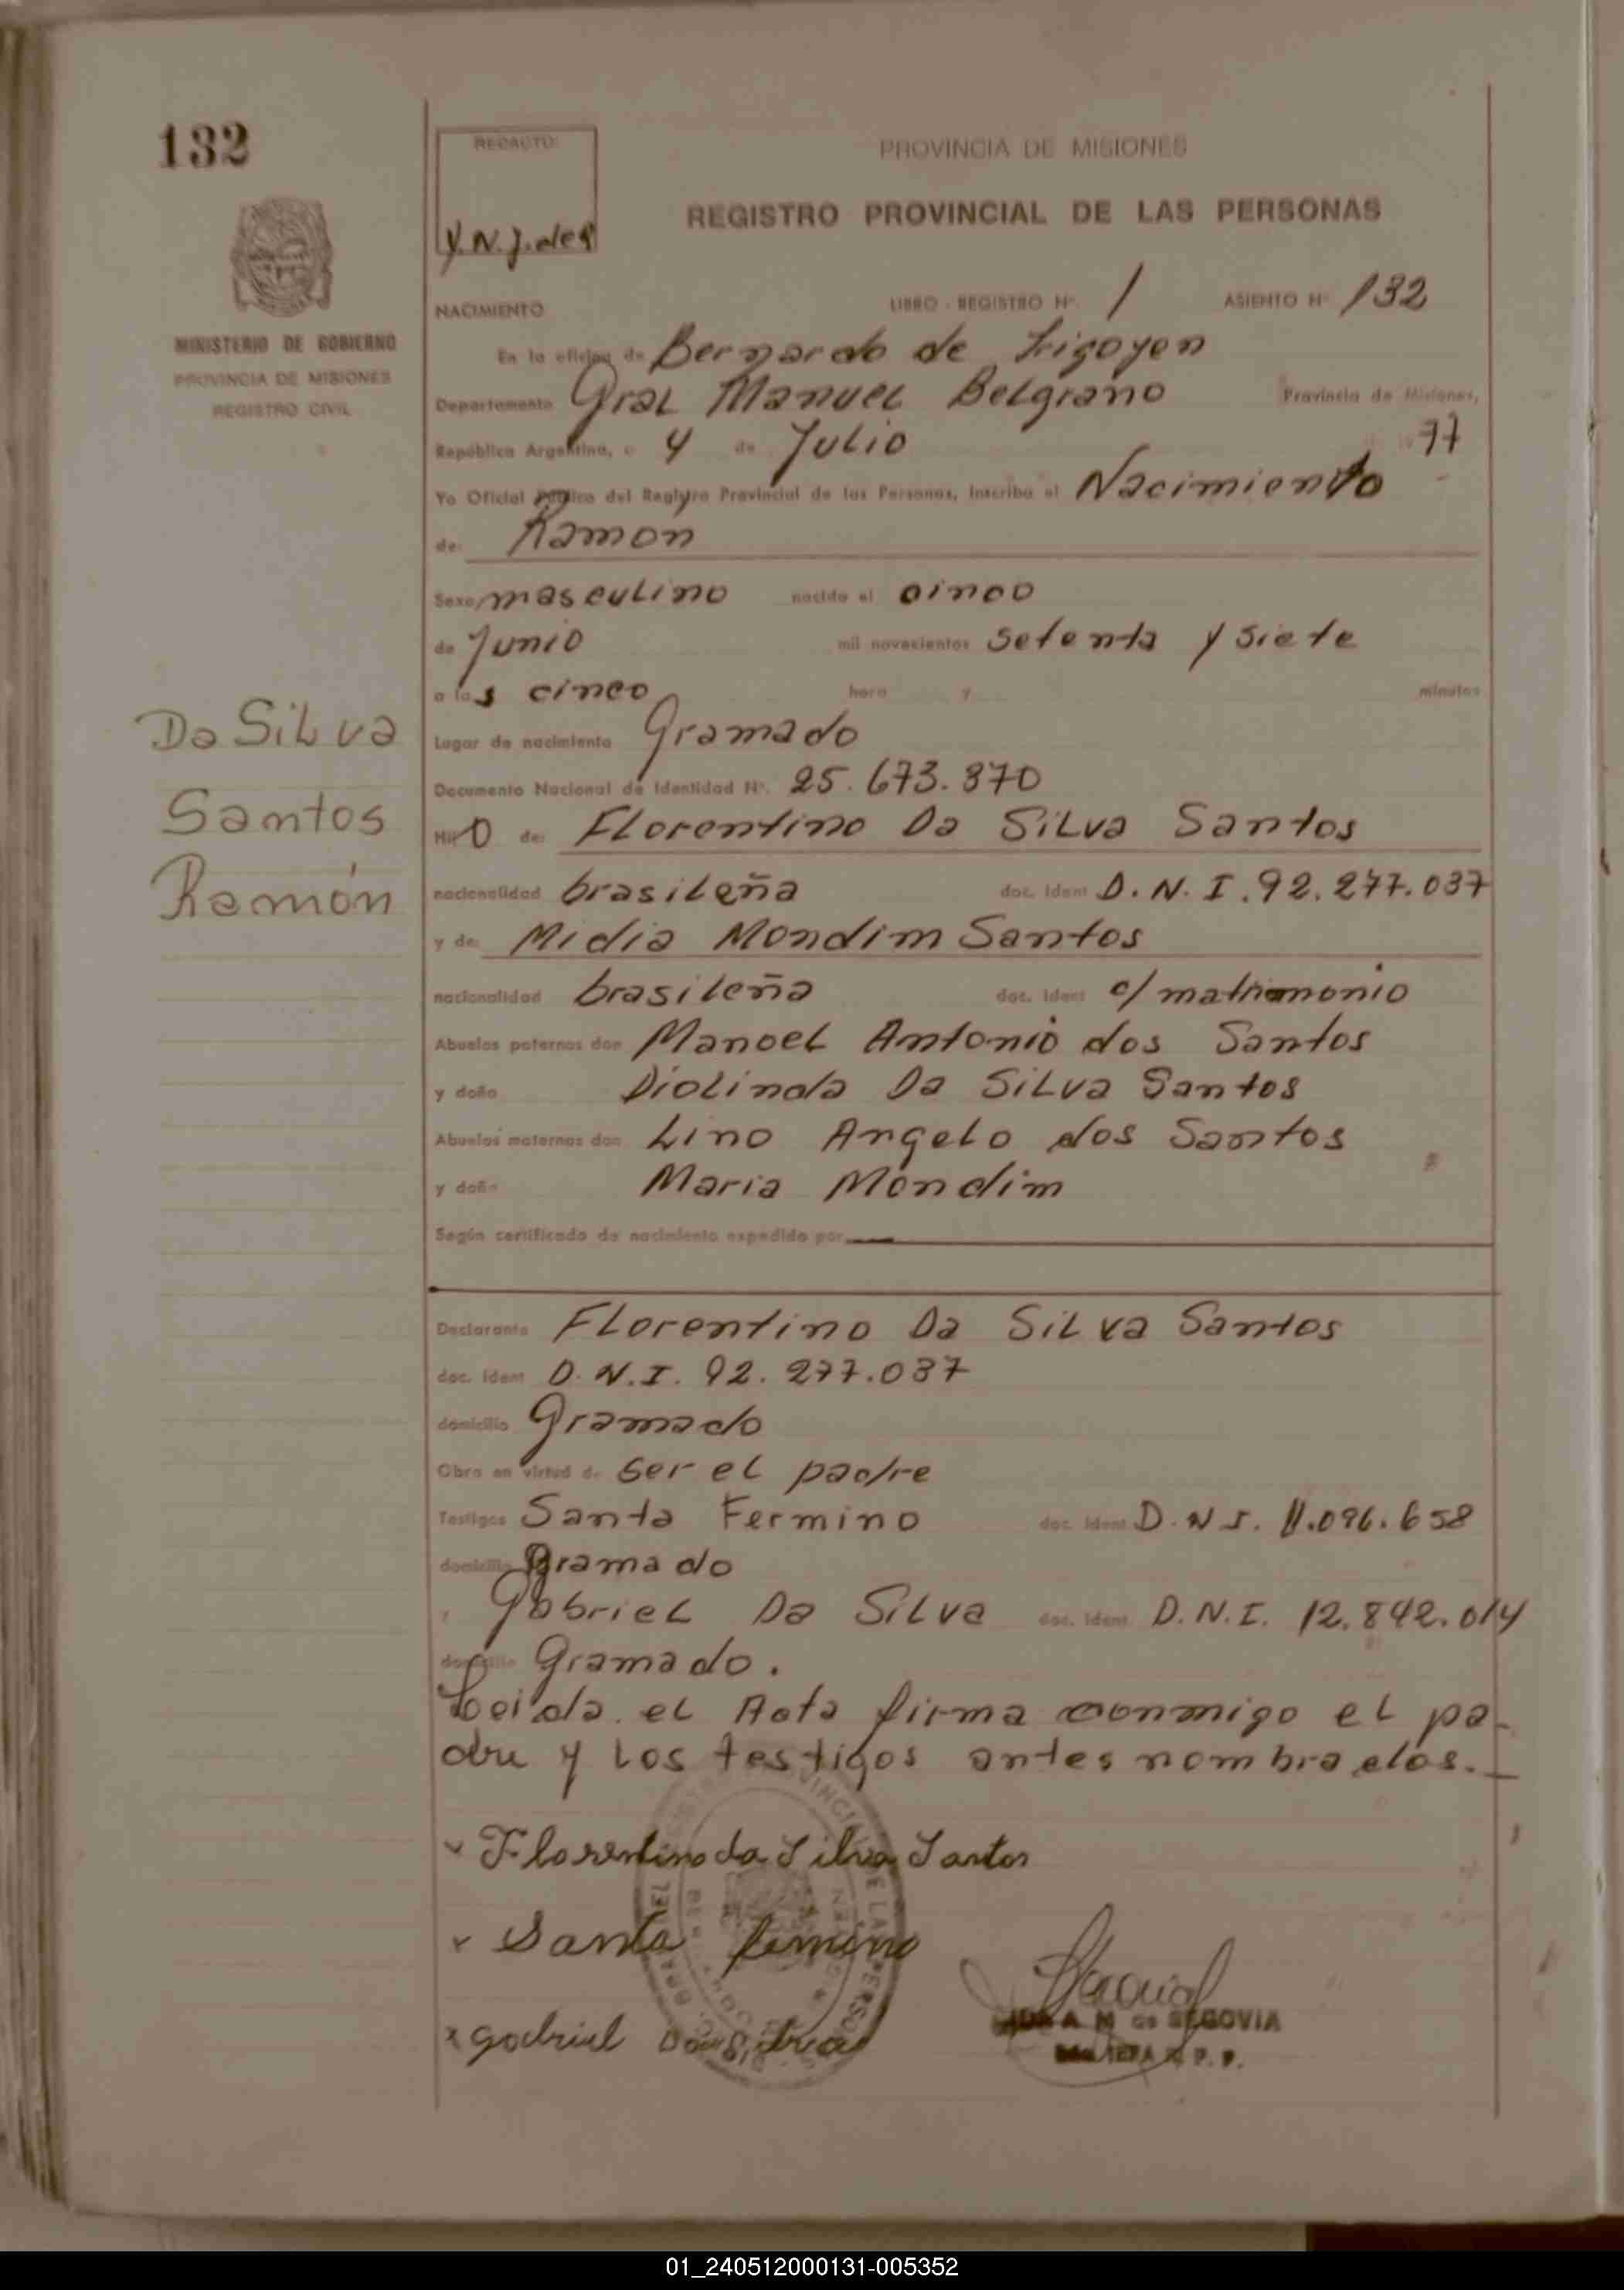 132
REDACTO:
PROVINCIA DE MISIONES
REGISTRO PROVINCIAL DE LAS PERSONAS
NACIMIENTO LIBRO - REGISTRO Nº. 1 ASIENTO Nº 132
MINISTERIO DE GOBIERNO
PROVINCIA DE MISIONES
REGISTRO CIVIL
En la oficina de Bernardo de Irigoyen
Departamento Gral Manuel Belgrano Provincia de Misiones,
República Argentina, a 4 de Julio 1977
Yo Oficial Público del Registro Provincial de las Personas, Inscribo el Nacimiento
de: Ramon
Sexo masculino nacido el cinco
de Junio mil novecientos setenta y siete
a las cinco hora y minutos
Lugar de nacimiento Gramado
Documento Nacional de Identidad Nº. 25.673.370
Da Silva
Santos
Ramón
Hijo de: Florentino Da Silva Santos
nacionalidad brasileña doc. ident D.N.I.92.277.037
y de: Midia Mondim Santos
nacionalidad brasileña doc. ident c/matrimonio
Abuelos paternos don Manoel Antonio dos Santos
y doña Diolinda Da Silva Santos
Abuelos maternos don Lino Angelo dos Santos
y doña Maria Mondim
Según certificado de nacimiento expedido por
Declarante Florentino Da Silva Santos
doc. ident D.N.I. 92.277.037
domicilio Gramado
Obra en virtud de ser el padre
Testigos Santa Fermino doc. ident D.N.I. 11.096.658
domicilio Gramado
y Gabriel Da Silva doc. ident D.N.I. 12.842.014
domicilio Gramado.
Leida el Acta firma conmigo el pa-
dre y los testigos antes nombrados.
x Florentino da Silva Santos
x Santa Fermino
x Gabriel Da Silva
M de SEGOVIA
01_240512000131-005352